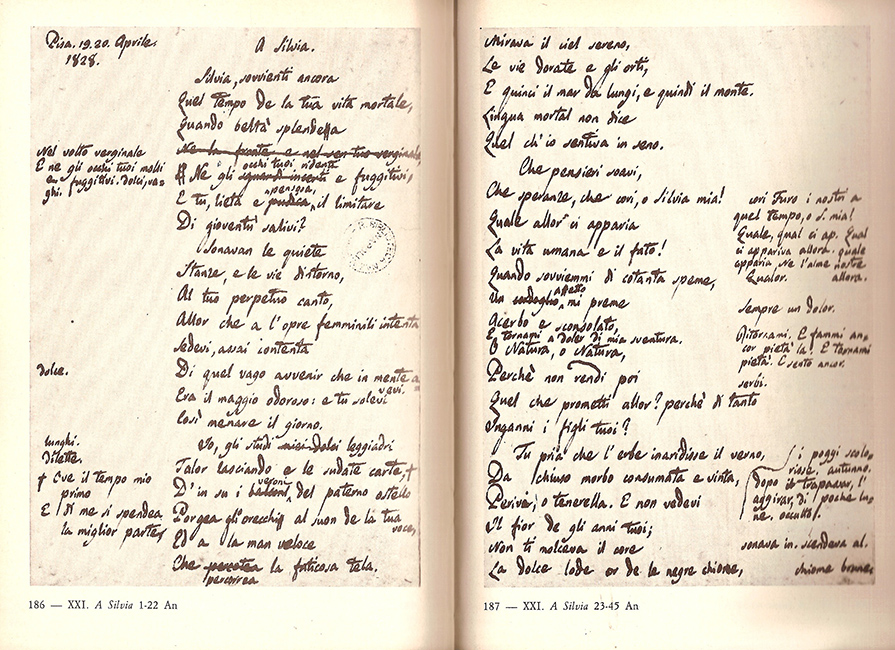 Pisa. 19. 20. Aprile.
1828.
A Silvia.
Silvia, sovvienti ancora
Quel tempo de la tua vita mortale,
Quando beltà splendeva
Nel volto verginale
E ne gli occhi tuoi molli
e fuggitivi. dolci, va=
ghi.
Ne la fronte e nel sen tuo verginale,
occhi tuoi ridenti
E Ne gli sguardi incerti e fuggitivi,
pensosa,
E tu, lieta e pudica, il limitare
Di gioventù salivi?
Sonavan le quiete
Stanze, e le vie dintorno,
Al tuo perpetuo canto,
Allor che a l'opre femminili intenta
Sedevi, assai contenta
dolce.
Di quel vago avvenir che in mente
avevi.
Era il maggio odoroso: e tu solevi
Così menare il giorno.
lunghi.
Io, gli studi miei dolci leggiadri
dilette.
Talor lasciando e le sudate carte, +
+ Ove il tempo mio
primo
E di me si spendea
la miglior parte,
veroni
D'in su i balconi, del paterno ostello
Porgea gli orecchi al suon de la tua
voce,
Ed a la man veloce
Che percotea la faticosa tela.
percorrea
186 — XXI. A Silvia 1-22 An
Mirava il ciel sereno,
Le vie dorate e gli orti,
E quinci il mar da lungi, e quindi il monte.
Lingua mortal non dice
Quel ch'io sentiva in seno.
Che pensieri soavi,
Che speranze, che cori, o Silvia mia!
cori Furo i nostri a
quel tempo, o S. mia!
Quale allor ci apparia
Quale, qual ci ap. Qual
ci appariva allora. quale
apparia. Ne l'alme nostre
Qualor. allora.
La vita umana e il fato!
Quando sovviemmi di cotanta speme,
affetto
Un cordoglio mi preme
sempre un dolor.
Acerbo e sconsolato,
E tornami a doler di mia sventura.
Ritorsami. E fammi an=
cor pietà la! E tornami
pietà. E sento ancor.
serbi.
O Natura, o Natura,
Perchè non rendi poi
Quel che prometti allor? perchè di tanto
Inganni i figli tuoi?
Tu pria che l'erbe inaridisse il verno,
i poggi scolo=
risse autunno.
Da chiuso morbo consumata e vinta,
dopo il trapassar, l'
aggirar, di poche lu=
ne, occulto.
Perivi, o tenerella. E non vedevi
Il fior de gli anni tuoi;
Non ti molceva il core
sonava in. scendeva al.
La dolce lode or de le negre chiome,
chiome brune
187 — XXI. A Silvia 23-45 An